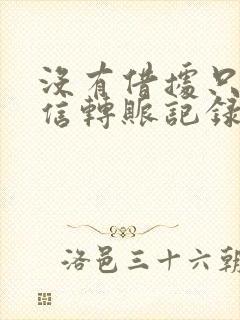 沒有借據只
信轉賬記録
洛邑三十六朝